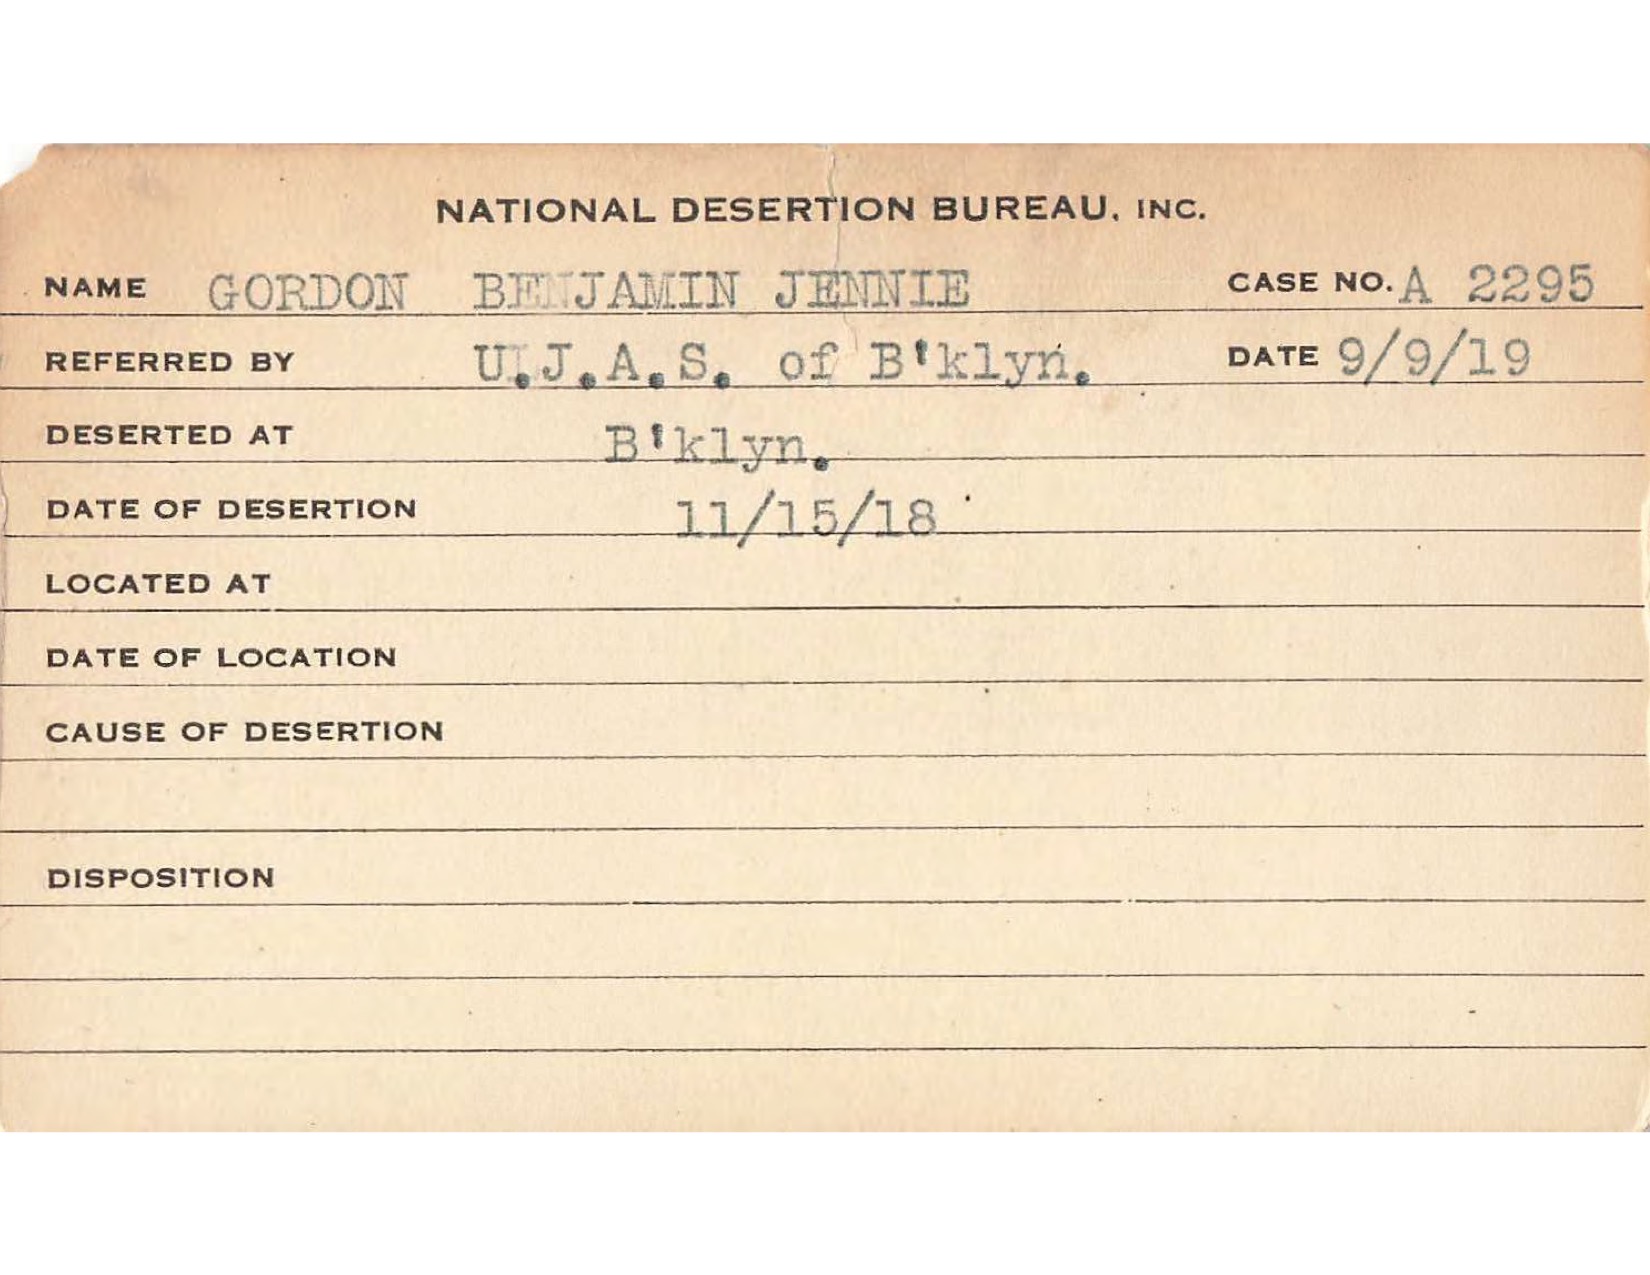 NATIONAL DESERTION BUREAU, INC.
NAME GORDON BENJAMIN JENNIE CASE NO. A 2295
REFERRED BY U.J.A.S. of B'klyn. DATE 9/9/19
DESERTED AT B'klyn.
DATE OF DESERTION 11/15/18
LOCATED AT
DATE OF LOCATION
CAUSE OF DESERTION
DISPOSITION